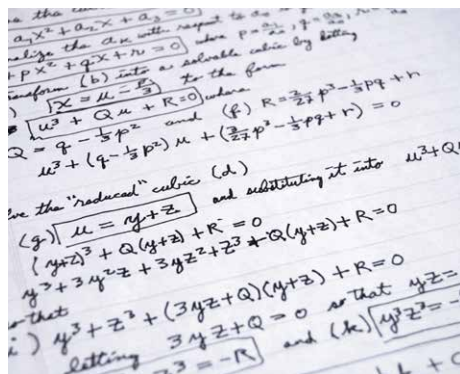 the
a₁x² + a₂x + a₃ = 0
the aₖ with respect to a₀
+ px² + qx + r = 0 where p = a₁/a₀, q =
(b) into a solvable cubic by letting
x = u - p/3 to the form
u³ + Qu + R = 0 where
Q = q - ⅓p² and (f) R = 2/27 p³ - ⅓pq + r
u³ + (q - ⅓p²) u + (2/27 p³ - ⅓pq + r) = 0
the "reduced" cubic (d)
(g) u = y + z and substituting it into u³ + Qu
(y+z)³ + Q(y+z) + R = 0
y³ + 3y²z + 3yz² + z³ + Q(y+z) + R = 0
that
) y³ + z³ + (3yz + Q)(y+z) + R = 0
letting 3yz + Q = 0 so that yz =
z³ = -R and (k) y³z³ = -